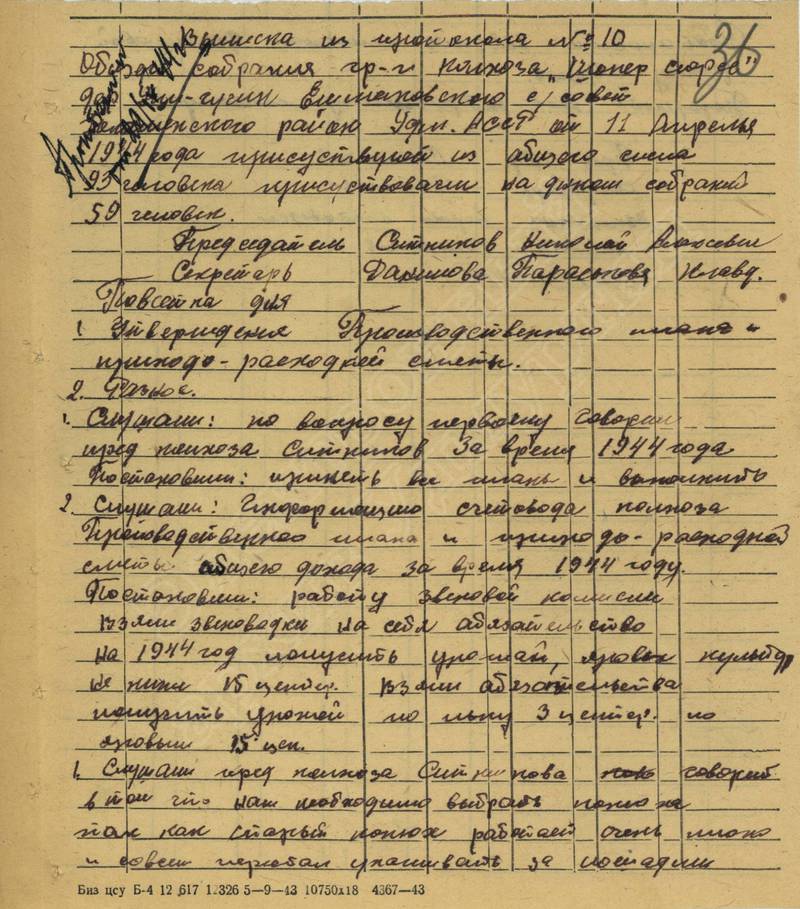 36
Выписка из протокола № 10
Общего собрания гр-н колхоза „Пионер
дер гучин с/совет
район Удм. АССР от 11 Апрелья
1944 года присуствущей из общего числа
93 человека присуствовали на даном собраний
59 человек.
Председатель Ситников Николай
Секретарь Данилова Парасковя Клавд.
Повестка дня
1. Утверждения Производственного плана и
приходо-расходней сметы.
2. Разное.
1. Слушали: по вопросу первому говорит
пред колхоза Ситников За время 1944 года
Постановили: принеть все планы и выполнить
2. Слушали: Информацию счетовода колхоза
Производственного плана и приходо-расходной
сметы общего дохода за время 1944 году.
Постановили: работу звеновой комисии
взяли звеноводки на себя обязательство
на 1944 год получить урожай, яровых культур
не ниже 15 центнр. взяли обязательства
получить урожей по льну 3 центнр. по
яровым 15 цен.
1. Слушали пред колхоза Ситникова говорит
в том что нам необходимо выбрать конюха
так как старый конюх работает очень плохо
и совсем перестал ухаживать за лошадми
Биз цсу Б-4 12 617 12326 5—9—43 10750х18 4367—43